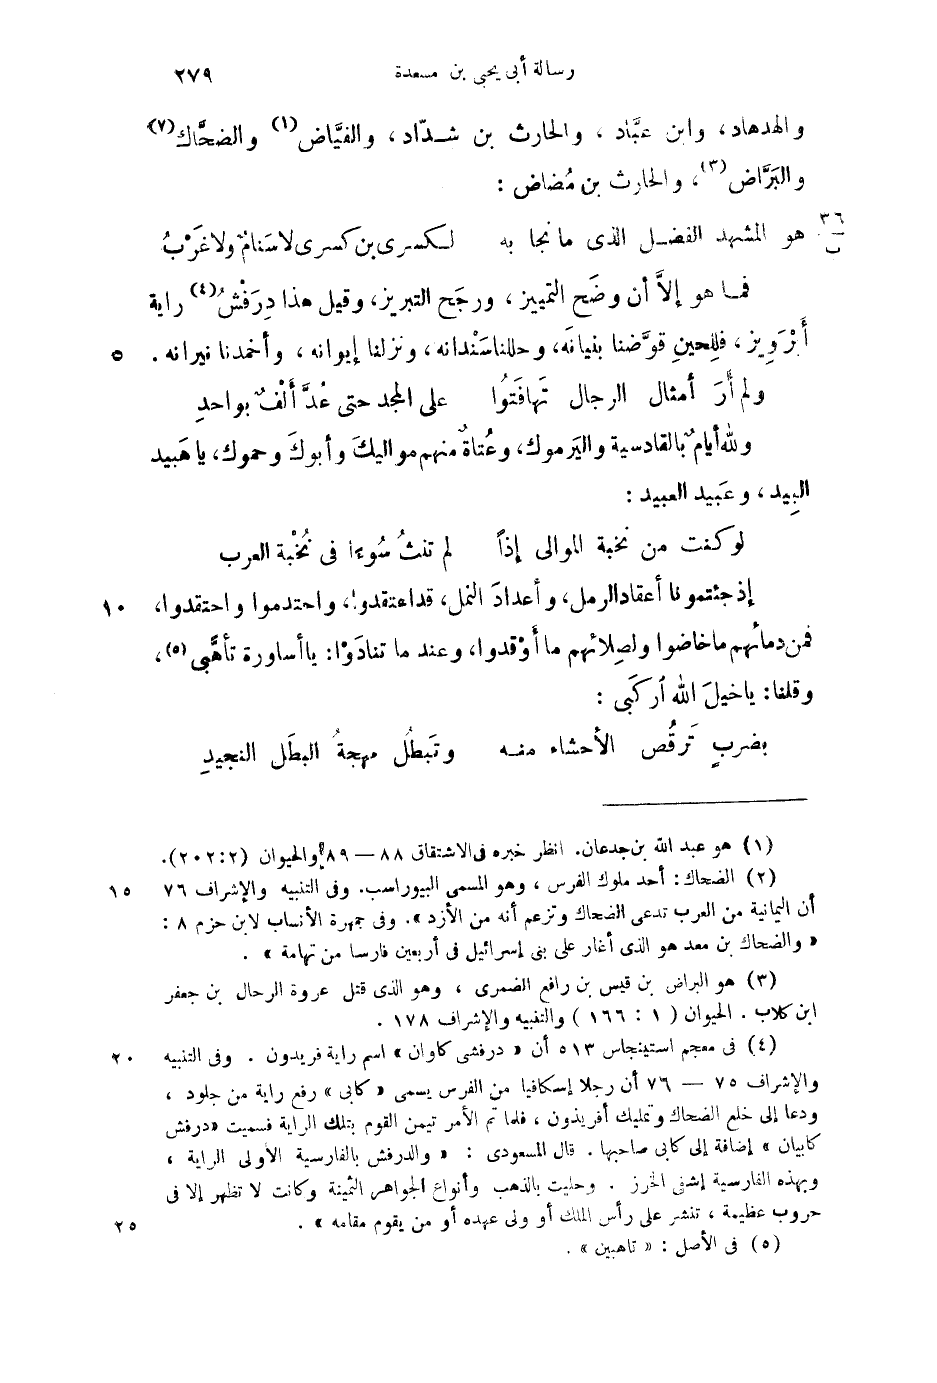 رسالة أبى يحيى بن مسعدة ٢٧٩
والهدهاد، وابن عبَّاد، والحارث بن شدّاد، والفيَّاض(١) والضحَّاك(٧)
والبَرَّاض(٣)، والحارث بن مُضاض:
٣٦ ب
هو المشهد الفضل الذى ما نجا به لكسرى بن كسرى لا سَنامٌ ولا غَرْبُ
فما هو إلاَّ أن وضَح التمييز، ورجَح التبريز، وقيل هذا دِرَفْشُ(٤) راية
أَبْرَوِيز، فللحينِ قوَّضنا بنيانَه، وحللنا سَنْدانه، ونزلنا إيوانه، وأخمدنا نيرانه. ٥
ولم أرَ أمثال الرجال تَهافَتُوا على المجد حتى عُدَّ أَلْفٌ بواحدِ
وللهِ أيامٌ بالقادسية واليرموك، وعُتاةٌ منهم مواليكَ وأبوكَ وحموك، ياهَبيد
البِيد، وعَبيد العبيد:
لو كنت من نخبة الموالى إذاً لم تنثُ سُوءًا فى نُخْبة العرب
إذ جئتمونا أعقاد الرمل، وأعدادَ النمل، قد اعتقدوا، واحتدموا واحتقدوا، ١٠
فمن دمائهم ما خاضوا ولصِلائهم ما أوْقدوا، وعند ما تنادَوْا: يا أساورة تأهَّبى(٥)،
وقلنا: ياخيلَ الله اركَبى:
بضربٍ تَرقُص الأحشاء منه وتَبطُل مهجةُ البطَل النجيدِ
(١) هو عبد الله بن جدعان. انظر خبره فى الاشتقاق ٨٨ — ٨٩ والحيوان (٢:٢٠٢).
(٢) الضحاك: أحد ملوك الفرس، وهو المسمى البيوراسب. وفى التنبيه والإشراف ٧٦ ١٥
أن اليمانية من العرب تدعى الضحاك وتزعم أنه من الأزد». وفى جمهرة الأنساب لابن حزم ٨:
«والضحاك بن معد هو الذى أغار على بنى إسرائيل فى أربعين فارسا من تهامة».
(٣) هو البراض بن قيس بن رافع الضمرى، وهو الذى قتل عروة الرحال بن جعفر
ابن كلاب. الحيوان (١: ١٦٦) والتنبيه والإشراف ١٧٨.
(٤) فى معجم استينجاس ٥١٣ أن «درفشى كاوان» اسم راية فريدون. وفى التنبيه ٢٠
والإشراف ٧٥ — ٧٦ أن رجلا إسكافيا من الفرس يسمى «كابى» رفع راية من جلود،
ودعا إلى خلع الضحاك وتمليك أفريذون، فلما تم الأمر تيمن القوم بتلك الراية فسميت «درفش
كابيان» إضافة إلى كابى صاحبها. قال المسعودى: «والدرفش بالفارسية الأولى الراية،
وبهذه الفارسية إشفى الخرز. وحليت بالذهب وأنواع الجواهر الثمينة وكانت لا تظهر إلا فى
حروب عظيمة، تنشر على رأس الملك أو ولى عهده أو من يقوم مقامه». ٢٥
(٥) فى الأصل: «تاهبين».